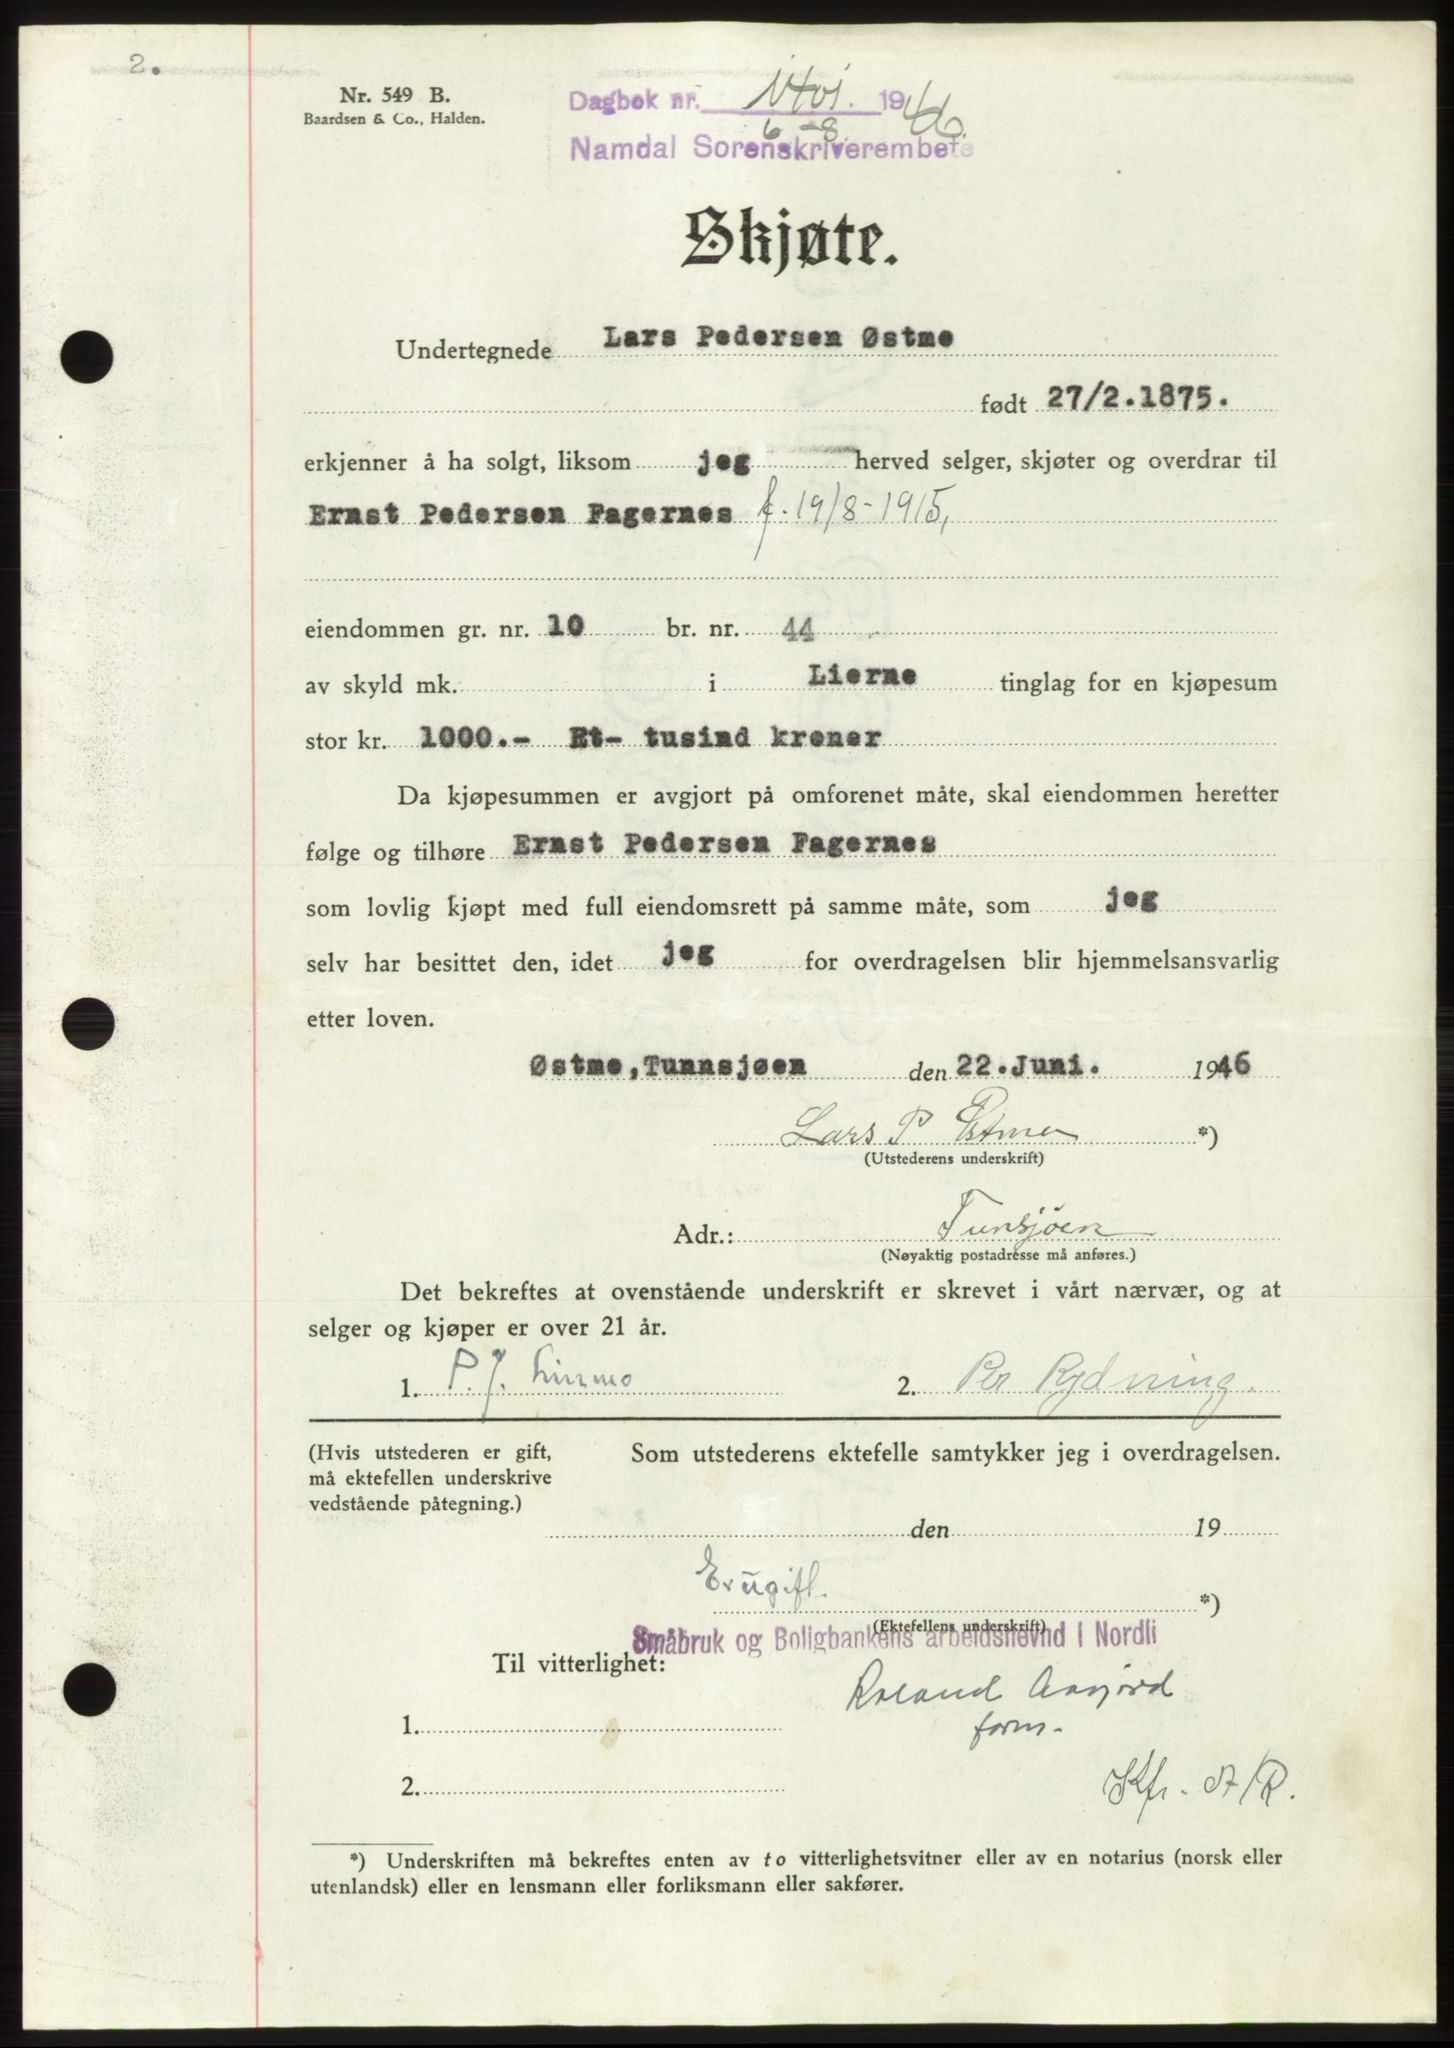 2.
Nr. 549 B.
Baardsen & Co., Halden.
Dagbok nr. 1401. 1946.
6-8
Namdal Sorenskriverembete
Skjøte.
Undertegnede Lars Pedersen Østmo
født 27/2.1875.
erkjenner å ha solgt, liksom jeg herved selger, skjøter og overdrar til
Ernst Pedersen Fagernes f. 19/8-1915,
eiendommen gr. nr. 10 br. nr. 44
av skyld mk. i Lierne tinglag for en kjøpesum
stor kr. 1000.- Et- tusind kroner
Da kjøpesummen er avgjort på omforenet måte, skal eiendommen heretter
følge og tilhøre Ernst Pedersen Fagernes
som lovlig kjøpt med full eiendomsrett på samme måte, som jeg
selv har besittet den, idet jeg for overdragelsen blir hjemmelsansvarlig
etter loven.
Østmo, Tunnsjøen den 22. Juni. 1946
Lars P Østmo *)
(Utstederens underskrift)
Adr.: Tunsjöen
(Nøyaktig postadresse må anføres.)
Det bekreftes at ovenstående underskrift er skrevet i vårt nærvær, og at
selger og kjøper er over 21 år.
1. P. J. Linmo 2. Per Rydning.
(Hvis utstederen er gift,
må ektefellen underskrive
vedstående påtegning.)
Som utstederens ektefelle samtykker jeg i overdragelsen.
den 19
Er ugift. *)
(Ektefellens underskrift)
Småbruk og Boligbankens arbeidsnevnd i Nordli
Til vitterlighet:
Roland Aasjord
1.
form.
2.
Kfr. A/R.
*) Underskriften må bekreftes enten av to vitterlighetsvitner eller av en notarius (norsk eller
utenlandsk) eller en lensmann eller forliksmann eller sakfører.